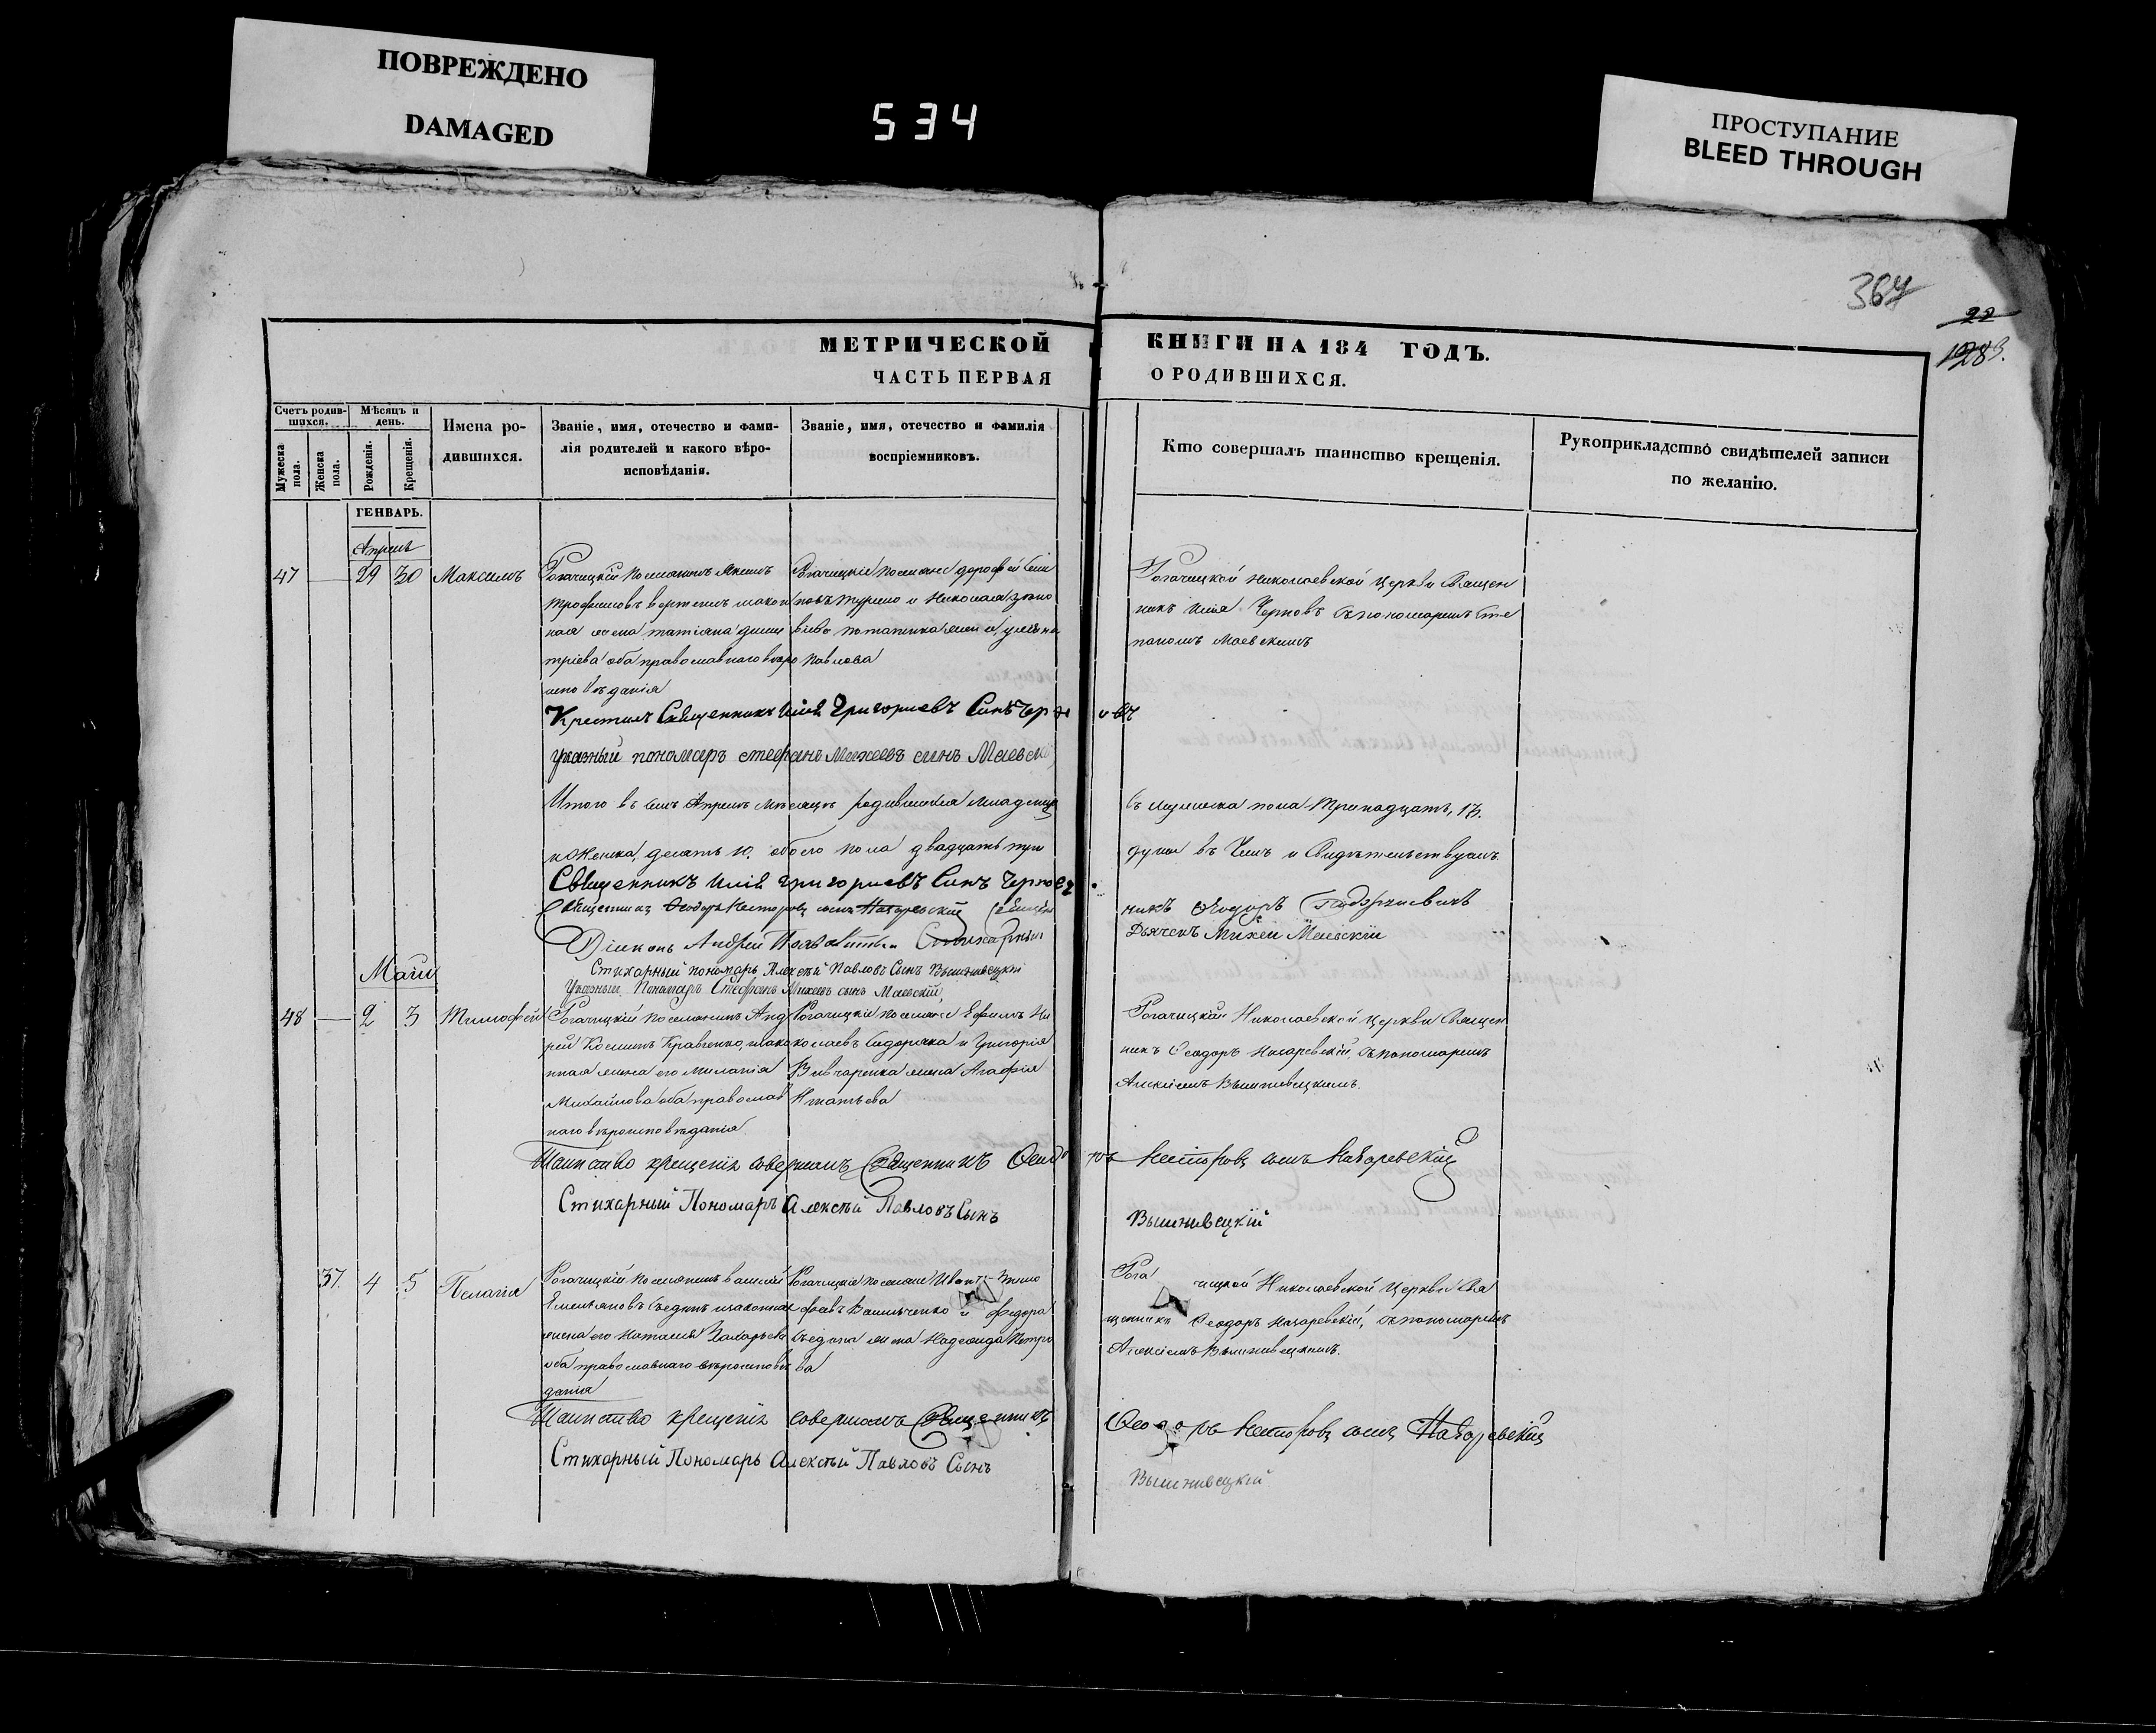 ПОВРЕЖДЕНО
DAMAGED
534
ПРОСТУПАНИЕ
BLEED THROUGH
367
22
1283.
МЕТРИЧЕСКОЙ КНИГИ НА 184 ГОДЪ.
ЧАСТЬ ПЕРВАЯ О РОДИВШИХСЯ.
Счетъ родив-
шихся.
Мужеска пола.
Женска пола.
Мѣсяцъ и
день.
Рожденія.
Крещенія.
Имена ро-
дившихся.
Званіе, имя, отечество и фами-
лія родителей и какого вѣро-
исповѣданія.
Званіе, имя, отечество и фамилія
воспріемниковъ.
Кто совершалъ таинство крещенія.
Рукоприкладство свидѣтелей записи
по желанію.
ГЕНВАРЬ.
Апрель
47 — 29 30 Максимъ
Рогачицкій поселянинъ Якимъ
Трофимовъ закон
ная жена татіяна дими
тріева оба православнаго вѣро
исповѣданія
Рогачицкіе поселяне дорофей
и Николая
жена
Павлова
Рогачицкой Николаевской церкви Священ
никъ Илія Черновъ съ пономаремъ Сте
паномъ Маевскимъ
Крестилъ Священникъ Илія Григориевъ Синъ Черновъ
указный пономаръ стефанъ Михеевъ синъ Маевскій
Итого въ семъ Апрелѣ мѣсяцѣ родившихся младенцевъ мужеска пола тринадцать, 13.
и женска, десять 10. обоего пола двадцать три души въ чемъ и Свидѣтельствуемъ
Священникъ Илія Григориевъ Синъ Черновъ.
Священникъ Ѳеодоръ Несторовъ сынъ Назаревскій Священникъ Ѳеодоръ
Діаконъ Андрей
Дьячекъ Михей Маевскій
Стихарный пономарь Алексѣй Павловъ Сынъ Вышнивецкій
Указный Пономаръ Стефанъ Михеевъ сынъ Маевскій
Маій
48 — 2 3 Тимофей
Рогачицкій поселянинъ Анд
рей Косминъ Кравченко, закон
ная жена его Миланія
Михайлова оба православ
наго вѣроисповѣданія
Рогачицкіе поселяне Ефимъ Ни
колаевъ Сидоряка и Григорія
жена Агафія
Игнатьева
Рогачицкой Николаевской церкви Священ
никъ Ѳеодоръ Назаревскій, съ пономаремъ
Алексіемъ Вышнивецкимъ.
Таинство крещенія совершалъ Священникъ Ѳеодоръ Несторовъ сынъ Назаревскій
Стихарный Пономаръ Алексѣй Павловъ Сынъ Вышнивецкій
37. 4 5 Пелагія
Рогачицкій поселянинъ василій
Емельяновъ законная
жена его Наталія Захарьева
оба православнаго вѣроисповѣ
данія
Рогачицкіе поселяне Иванъ
Васильченко и федора
жена Надежда Петро
ва
Рогачицкой Николаевской Церкви Свя
щенникъ Ѳеодоръ Назаревскій, съ пономаремъ
Алексіемъ Вышнивецкимъ.
Таинство крещенія совершалъ Священникъ Ѳеодоръ Несторовъ сынъ Назаревскій
Стихарный Пономарь Алексѣй Павловъ Сынъ Вышнивецкій